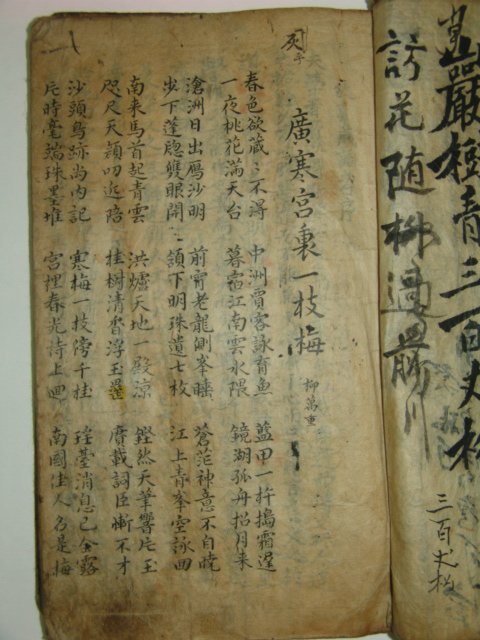 巖樹青三百丈松
訪花随柳過前川
三百丈松
廣寒宮裏一枝梅 柳萬重
春色欲藏〻不得 中洲賈客詠育魚 藍甲一杵搗霜遲
一夜桃花滿天台 暮宿江南雲水隈 鏡湖孤舟招月来
滄洲日出鴈沙明 前宵老龍測峯睡 蒼茫神意不自曉
步下蓬窓雙眼開 頷下明珠遺七枚 江上青峯空詠回
南来馬首起青雲 洪爐天地一殿凉 鏗然天筆響片玉
咫尺天顔叨近陪 桂樹清香浮玉罍 賡載詞臣慚不才
沙頭鳥跡尚内記 寒梅一枝傍千桂 瑤臺消息已金露
片時毫端珠墨堆 宮裡春光待上囬 南國佳人名是梅